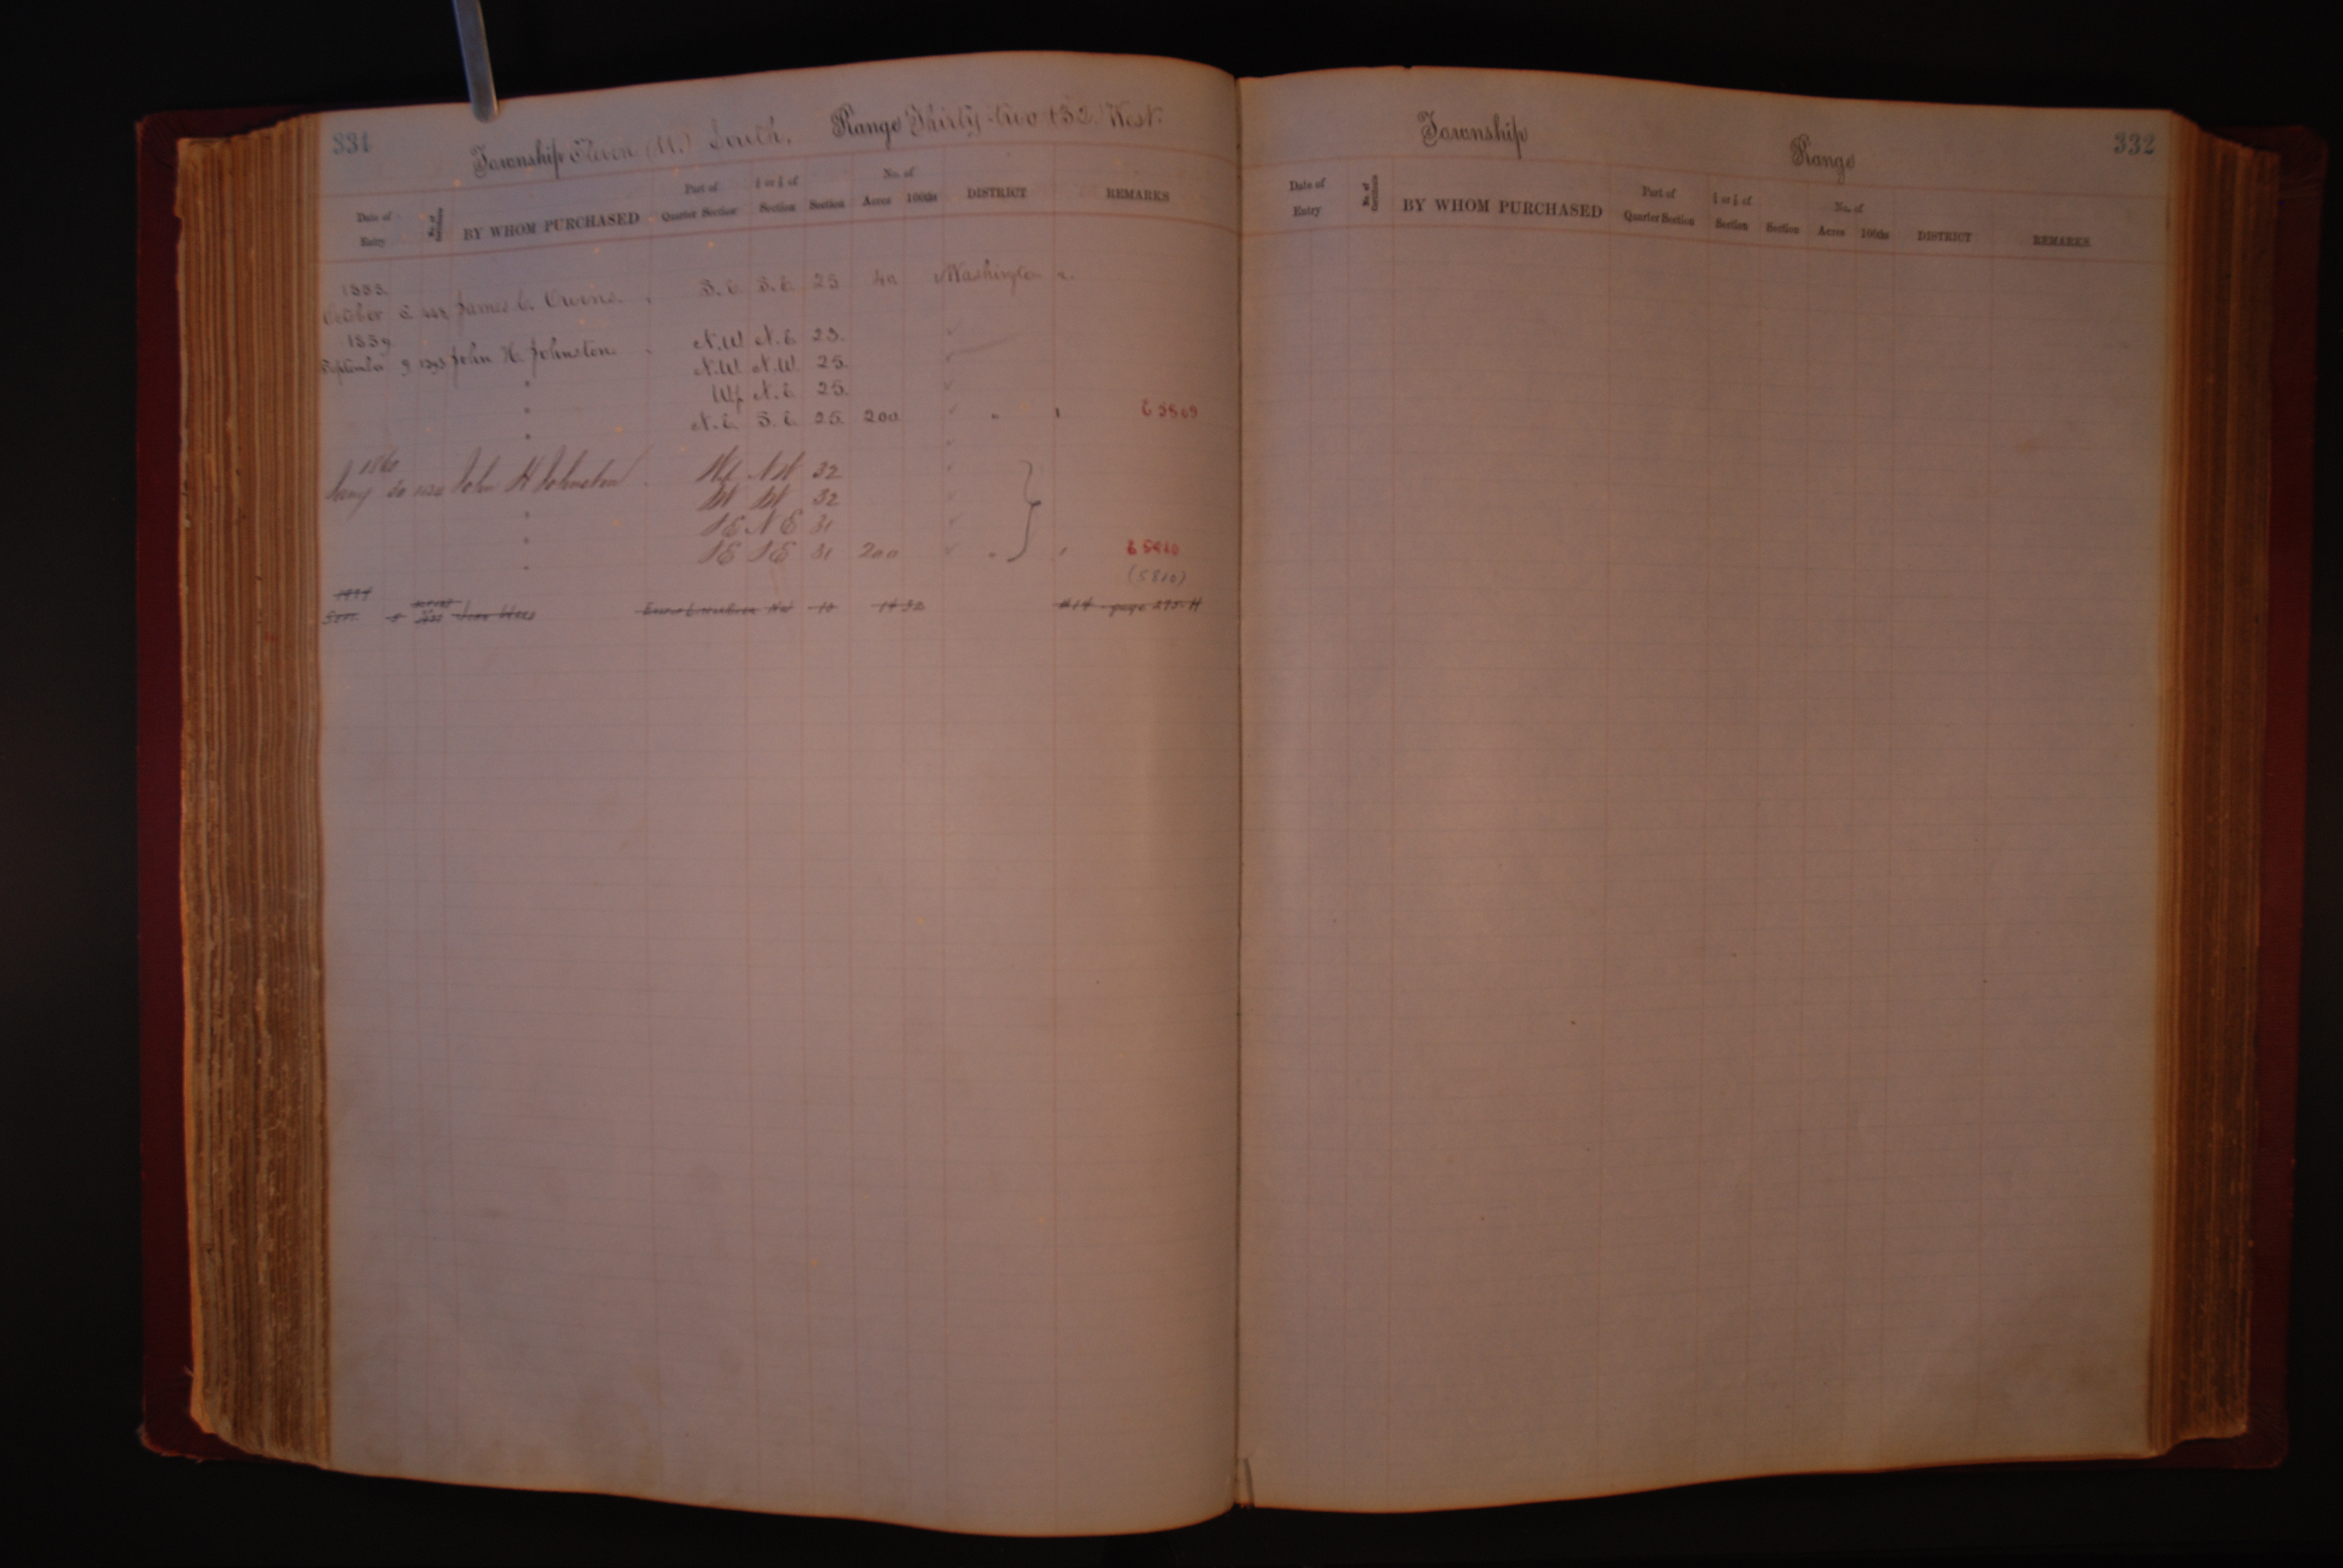 331
Township Eleven (11.) South. Range Thirty-two (32.) West.
Date of Entry No. of Certificate BY WHOM PURCHASED Part of Quarter Section ½ or ¼ of Section Section No. of Acres 100ds DISTRICT REMARKS
October 6 448 James C. Owens. S.E. S.E. 25 40 Washington
1859
September 9 1393 John H. Johnston. N.W. N.E. 23.
" N.W. N.W. 25.
" W½ N.E. 25.
" N.E. S.E. 25. 200 "
1860
Jany 20 John H Johnston W½ NW 32
" SW SW 32
" SE NE 31
" SE SE 31 200 "
(5810)
10 14 page 295. H
332
Township Range
Date of Entry No. of Certificate BY WHOM PURCHASED Part of Quarter Section ½ or ¼ of Section Section No. of Acres 100ds DISTRICT REMARKS